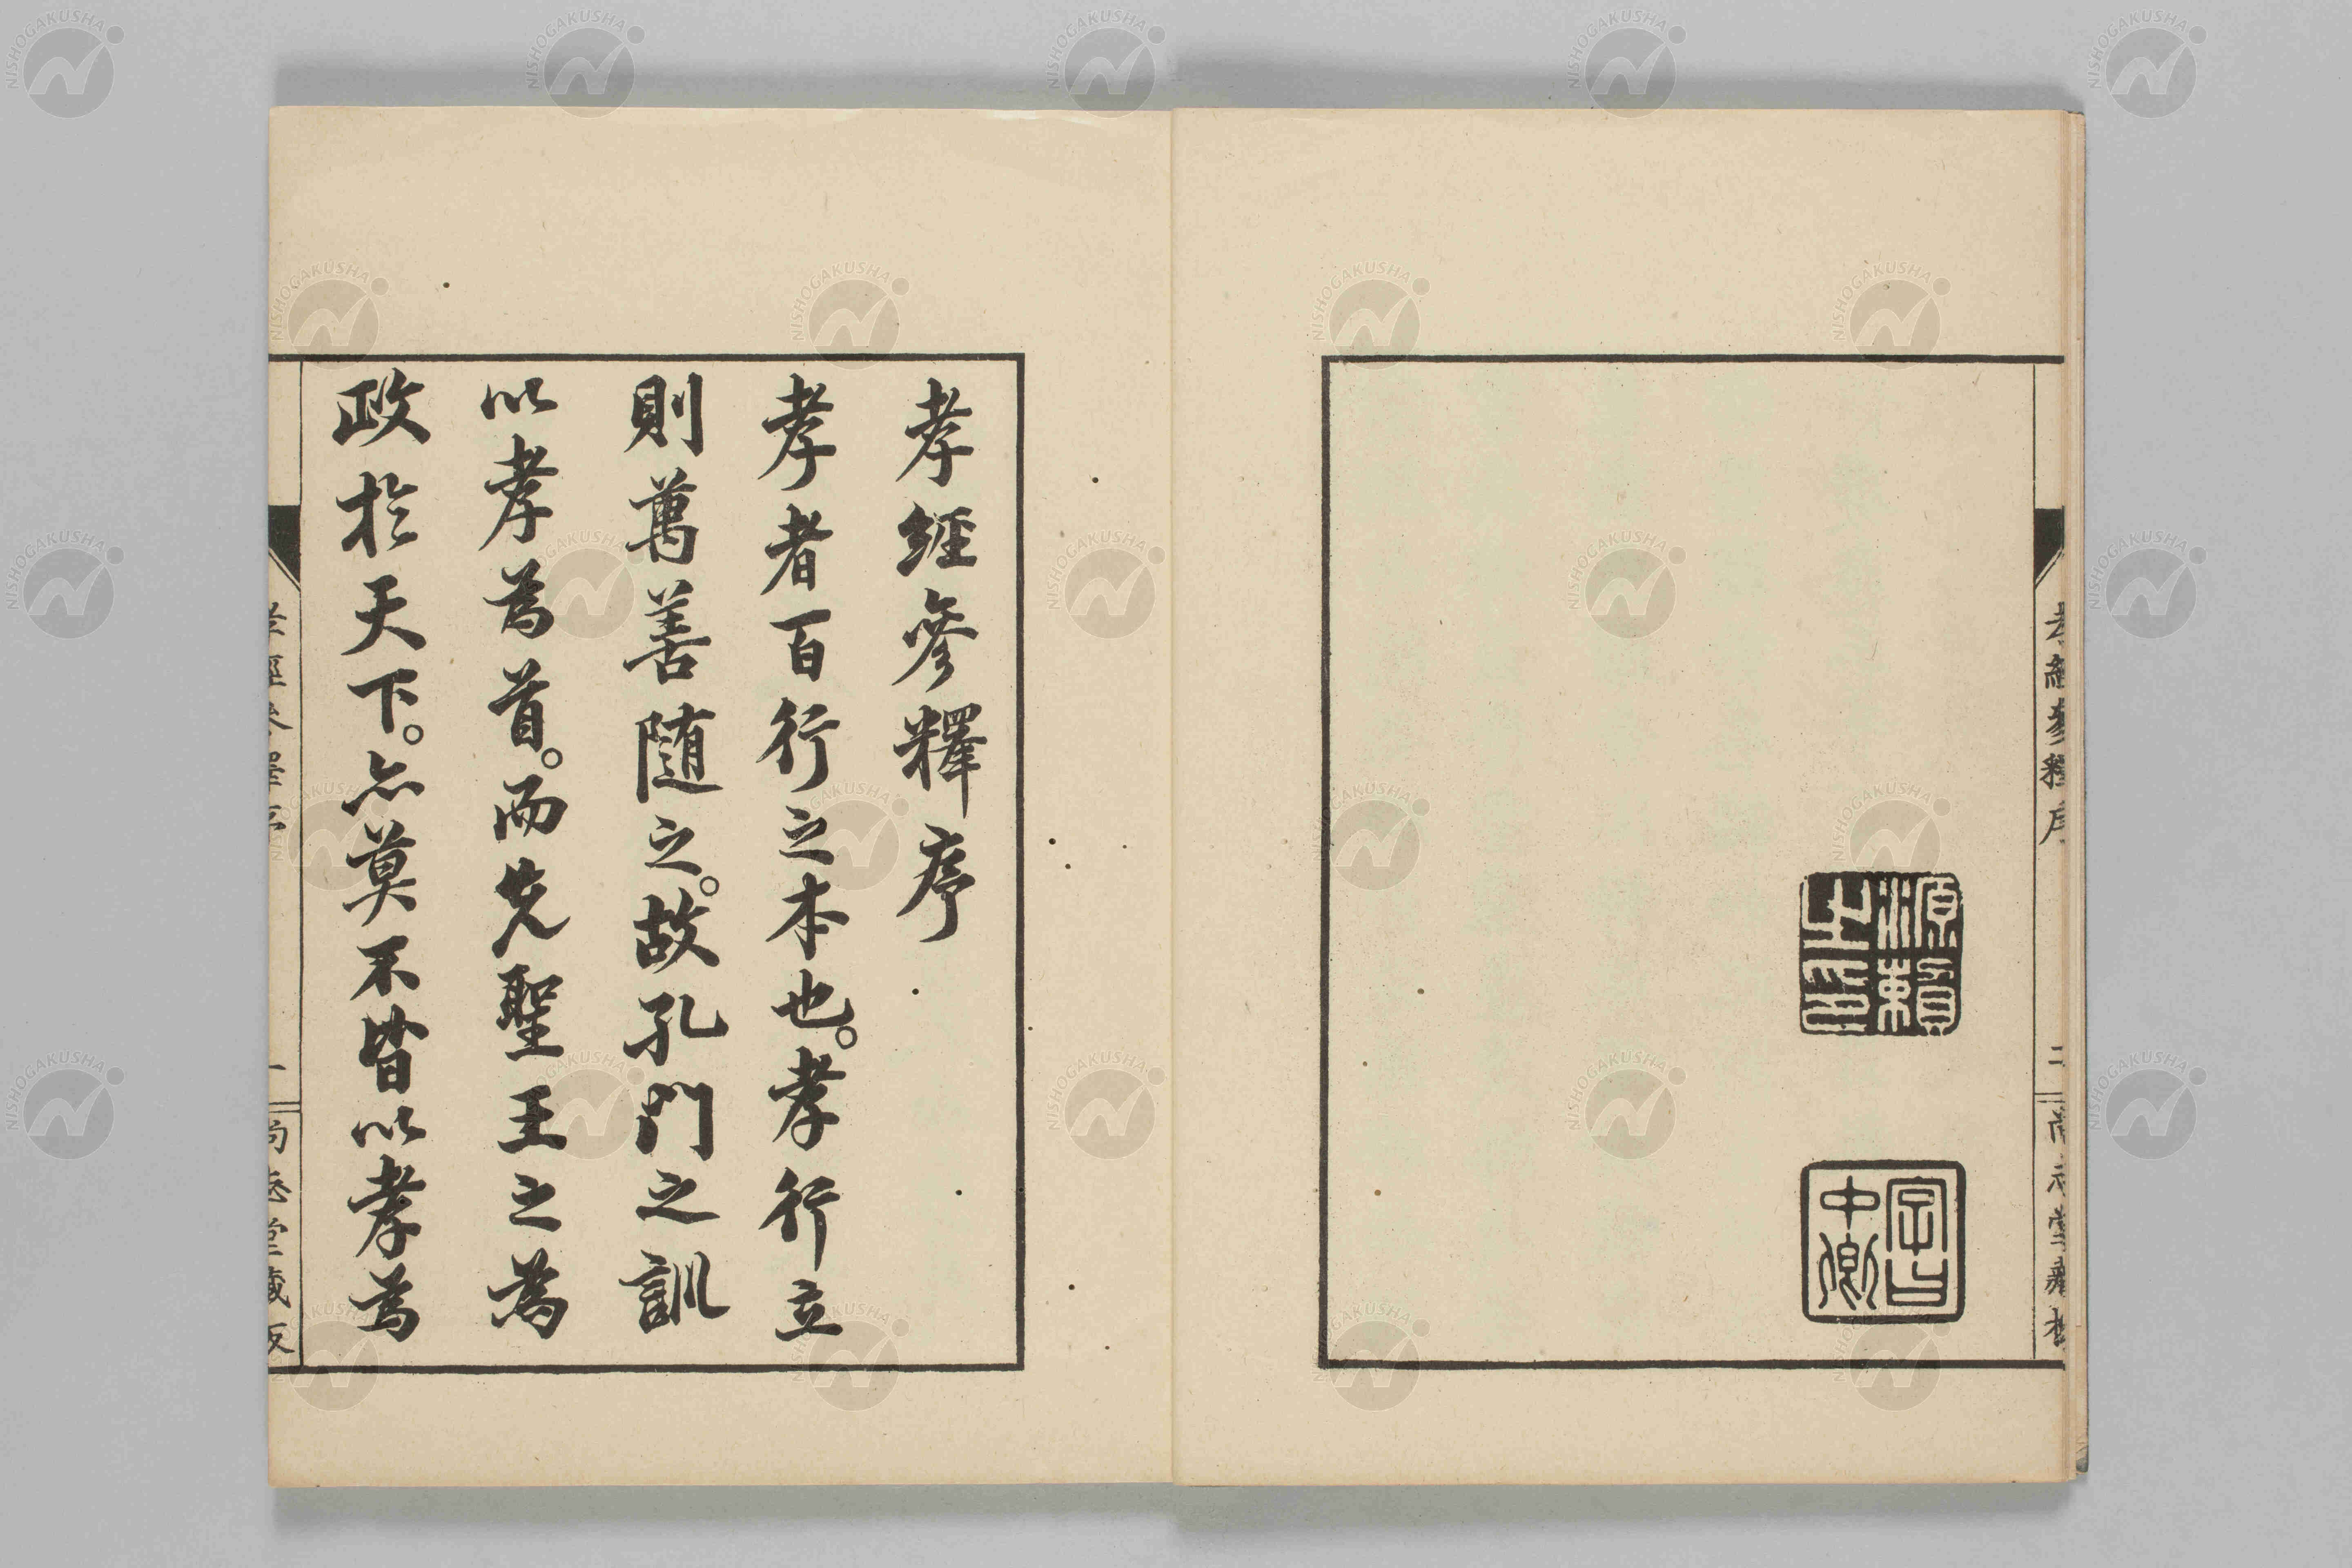 孝經參釋序
二
尚志堂藏板
源賴之印
字曰中卿
孝經參釋序
孝者百行之本也。孝行立
則萬善随之。故孔門之訓
以孝為首。而先聖王之為
政於天下。亦莫不皆以孝為
孝經參釋序
一
尚志堂藏板
NISHOGAKUSHA